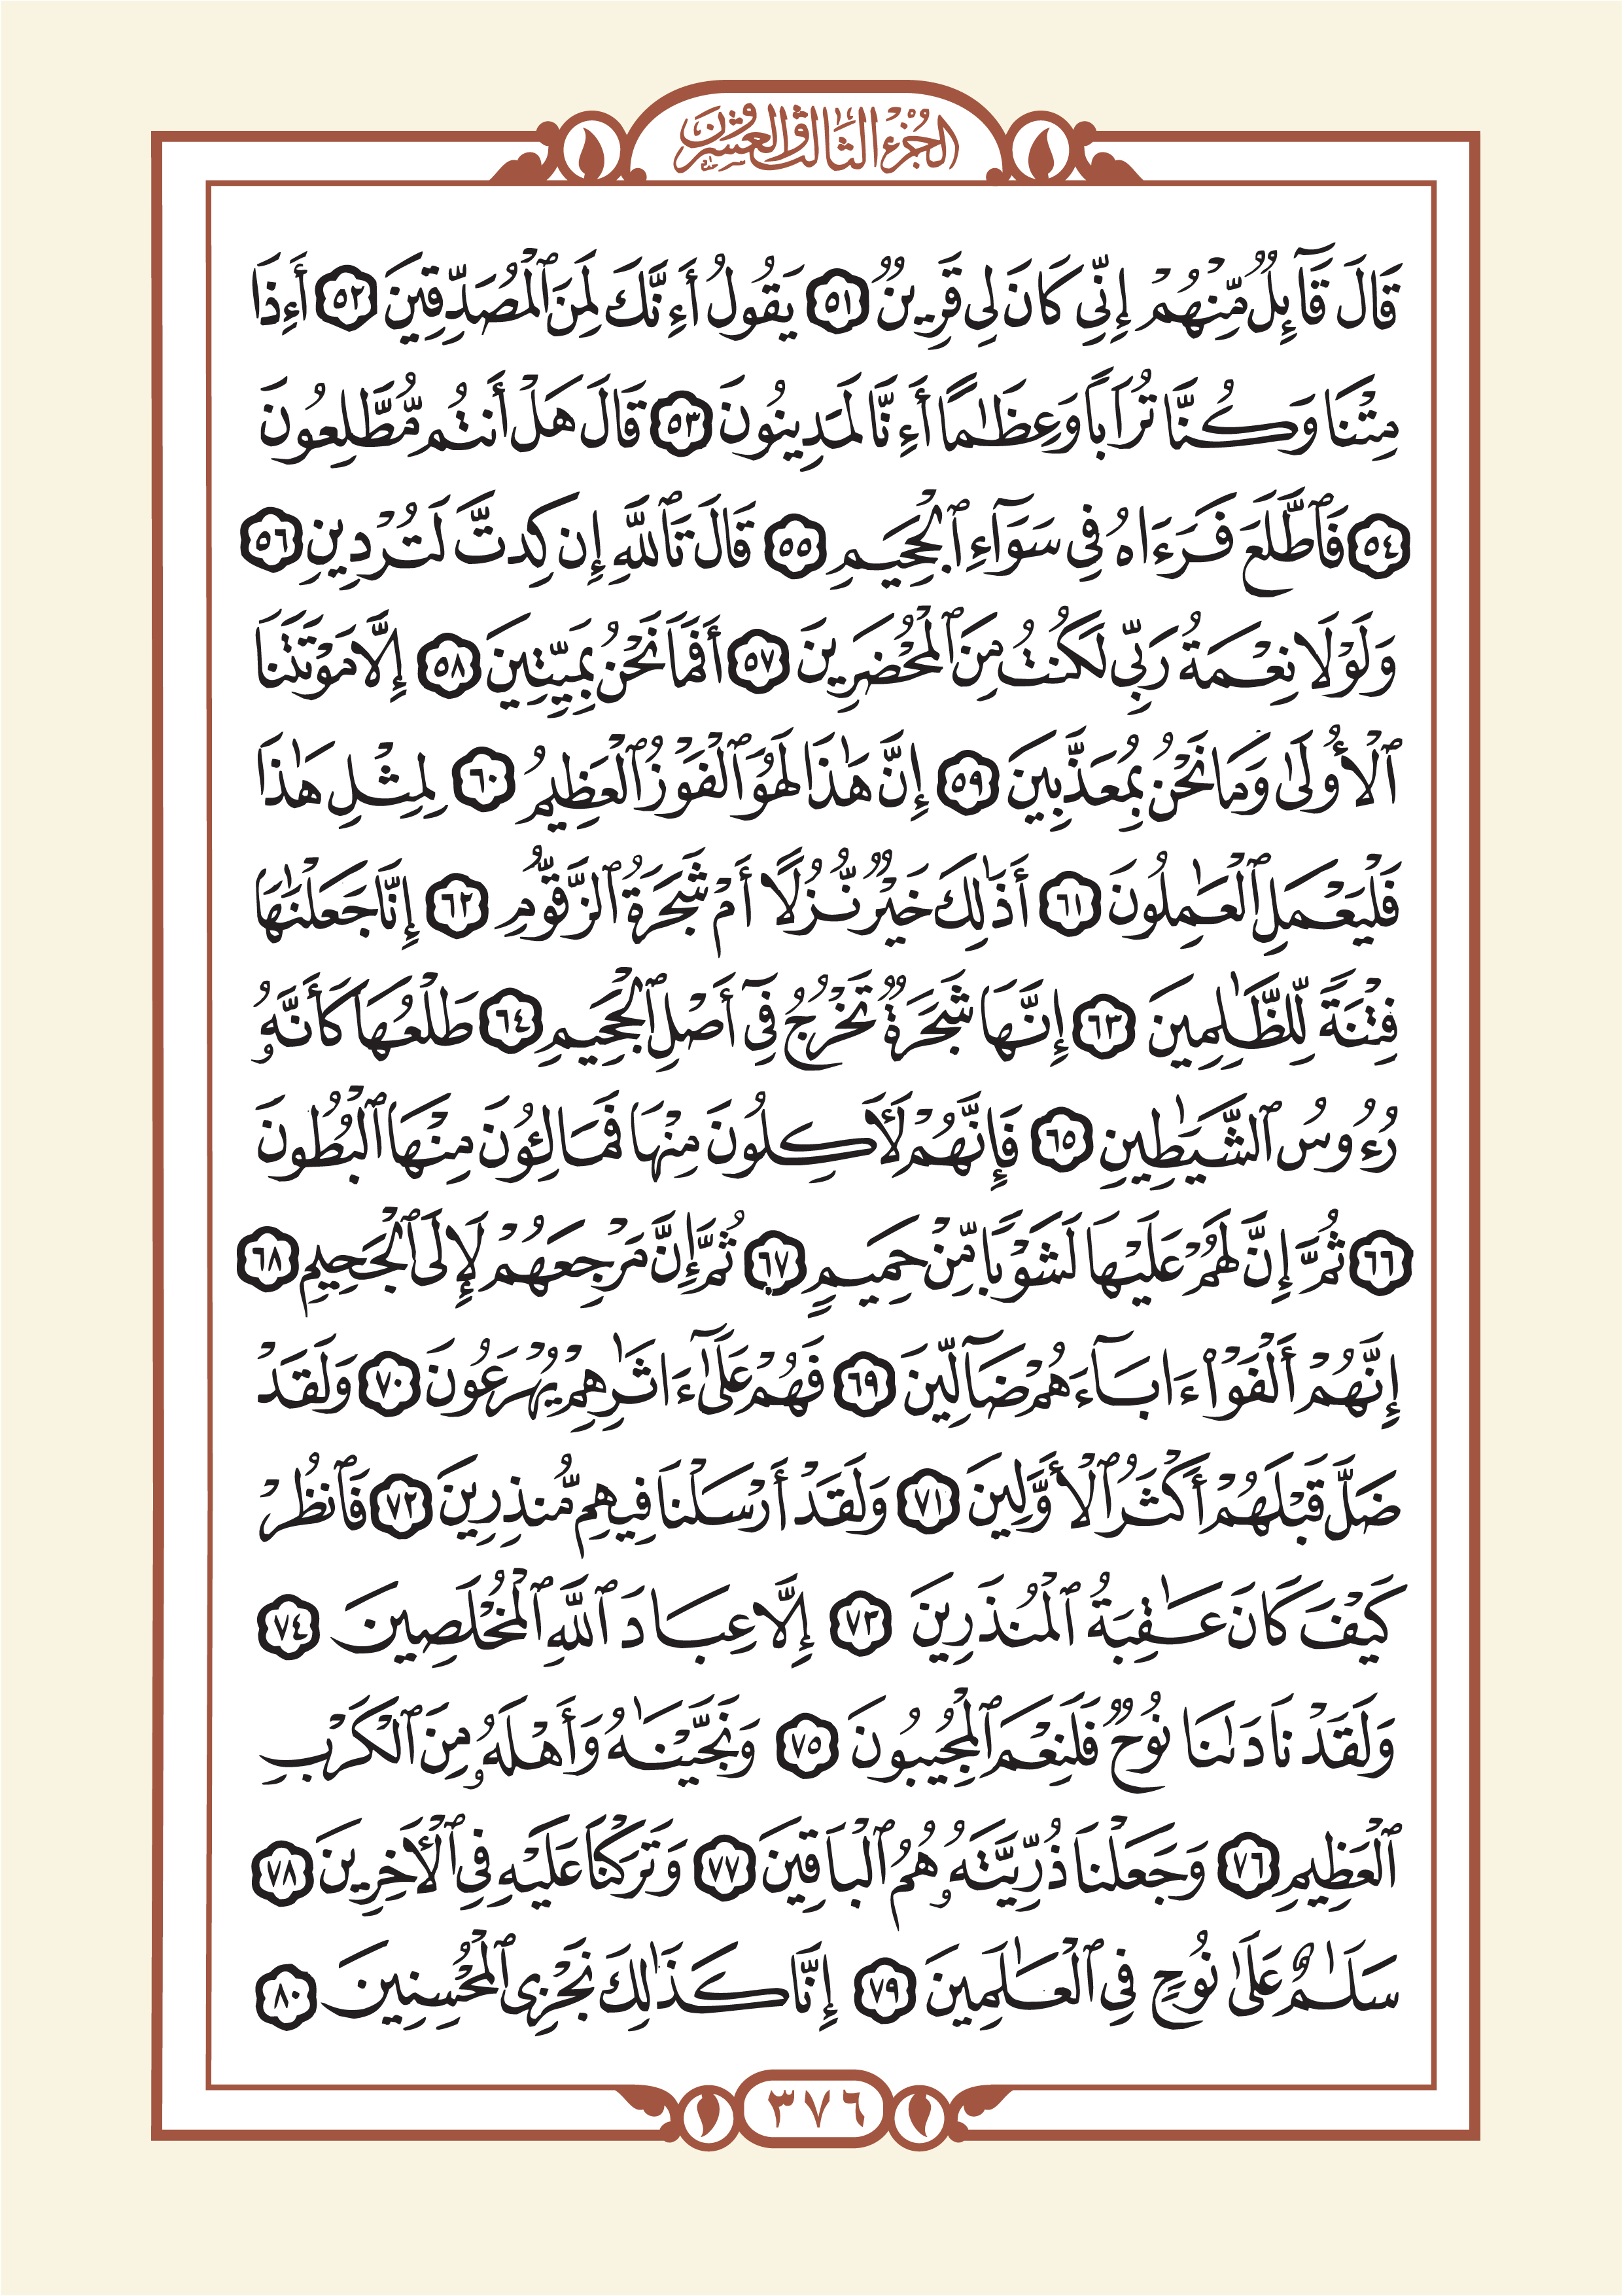 الجزء الثالث والعشرون
قَالَ قَآئِلٌ مِّنْهُمْ إِنِّي كَانَ لِي قَرِينٌ ٥١ يَقُولُ أَءِنَّكَ لَمِنَ ٱلْمُصَدِّقِينَ ٥٢ أَءِذَا
مِتْنَا وَكُنَّا تُرَابًا وَعِظَٰمًا أَءِنَّا لَمَدِينُونَ ٥٣ قَالَ هَلْ أَنتُم مُّطَّلِعُونَ
٥٤ فَٱطَّلَعَ فَرَءَاهُ فِي سَوَآءِ ٱلْجَحِيمِ ٥٥ قَالَ تَٱللَّهِ إِن كِدتَّ لَتُرْدِينِ ٥٦
وَلَوْلَا نِعْمَةُ رَبِّي لَكُنتُ مِنَ ٱلْمُحْضَرِينَ ٥٧ أَفَمَا نَحْنُ بِمَيِّتِينَ ٥٨ إِلَّا مَوْتَتَنَا
ٱلْأُولَىٰ وَمَا نَحْنُ بِمُعَذَّبِينَ ٥٩ إِنَّ هَٰذَا لَهُوَ ٱلْفَوْزُ ٱلْعَظِيمُ ٦٠ لِمِثْلِ هَٰذَا
فَلْيَعْمَلِ ٱلْعَٰمِلُونَ ٦١ أَذَٰلِكَ خَيْرٌ نُّزُلًا أَمْ شَجَرَةُ ٱلزَّقُّومِ ٦٢ إِنَّا جَعَلْنَٰهَا
فِتْنَةً لِّلظَّٰلِمِينَ ٦٣ إِنَّهَا شَجَرَةٌ تَخْرُجُ فِيٓ أَصْلِ ٱلْجَحِيمِ ٦٤ طَلْعُهَا كَأَنَّهُۥ
رُءُوسُ ٱلشَّيَٰطِينِ ٦٥ فَإِنَّهُمْ لَأٓكِلُونَ مِنْهَا فَمَالِـُٔونَ مِنْهَا ٱلْبُطُونَ
٦٦ ثُمَّ إِنَّ لَهُمْ عَلَيْهَا لَشَوْبًا مِّنْ حَمِيمٍ ٦٧ ثُمَّ إِنَّ مَرْجِعَهُمْ لَإِلَى ٱلْجَحِيمِ ٦٨
إِنَّهُمْ أَلْفَوْا۟ ءَابَآءَهُمْ ضَآلِّينَ ٦٩ فَهُمْ عَلَىٰٓ ءَاثَٰرِهِمْ يُهْرَعُونَ ٧٠ وَلَقَدْ
ضَلَّ قَبْلَهُمْ أَكْثَرُ ٱلْأَوَّلِينَ ٧١ وَلَقَدْ أَرْسَلْنَا فِيهِم مُّنذِرِينَ ٧٢ فَٱنظُرْ
كَيْفَ كَانَ عَٰقِبَةُ ٱلْمُنذَرِينَ ٧٣ إِلَّا عِبَادَ ٱللَّهِ ٱلْمُخْلَصِينَ ٧٤
وَلَقَدْ نَادَىٰنَا نُوحٌ فَلَنِعْمَ ٱلْمُجِيبُونَ ٧٥ وَنَجَّيْنَٰهُ وَأَهْلَهُۥ مِنَ ٱلْكَرْبِ
ٱلْعَظِيمِ ٧٦ وَجَعَلْنَا ذُرِّيَّتَهُۥ هُمُ ٱلْبَاقِينَ ٧٧ وَتَرَكْنَا عَلَيْهِ فِي ٱلْأَخِرِينَ ٧٨
سَلَٰمٌ عَلَىٰ نُوحٍ فِي ٱلْعَٰلَمِينَ ٧٩ إِنَّا كَذَٰلِكَ نَجْزِي ٱلْمُحْسِنِينَ ٨٠
٣٧٦